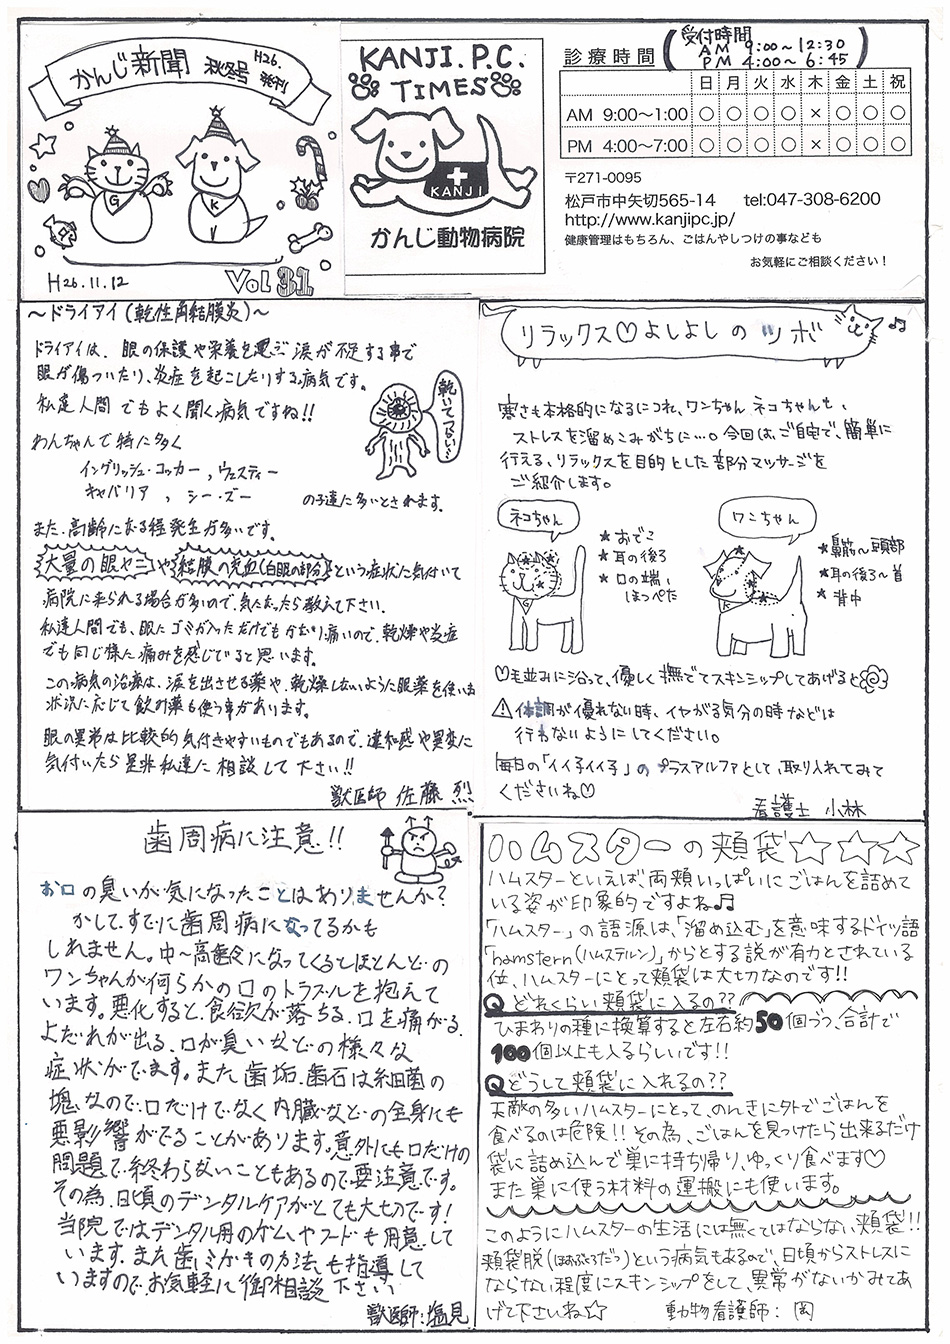 かんじ新聞 秋冬号 H26. 発刊
G
K
H26.11.12
Vol 31
KANJI.P.C.
TIMES
KANJI
かんじ動物病院
診療時間
受付時間
AM 9:00~12:30
PM 4:00~6:45
日 月 火 水 木 金 土 祝
AM 9:00〜1:00 ○ ○ ○ ○ × ○ ○ ○
PM 4:00〜7:00 ○ ○ ○ ○ × ○ ○ ○
〒271-0095
松戸市中矢切565-14 tel:047-308-6200
http://www.kanjipc.jp/
健康管理はもちろん、ごはんやしつけの事なども
お気軽にご相談ください！
～ドライアイ(乾性角結膜炎)～
ドライアイは、眼の保護や栄養を運ぶ涙が不足する事で
眼が傷ついたり、炎症を起こしたりする病気です。
私達人間でもよく聞く病気ですね!!
乾いてつらい…
わんちゃんで特に多く
イングリッシュ・コッカー、ウェスティー
キャバリア、シー・ズー
の子達に多いとされます。
また、高齢になる程発生が多いです。
大量の眼ヤニや結膜の充血(白眼の部分)という症状に気付いて
病院に来られる場合が多いので、気になったら教えて下さい。
私達人間でも、眼にゴミが入っただけでもかなり痛いので、乾燥や炎症
でも同じ様に痛みを感じていると思います。
この病気の治療は、涙を出させる薬や、乾燥しないように眼薬を使い
状況に応じて飲み薬も使う事があります。
眼の異常は比較的気付きやすいものでもあるので、違和感や異変に
気付いたら是非私達に相談して下さい!!
獣医師 佐藤 烈
リラックス♡よしよしのツボ
寒さも本格的になるにつれ、ワンちゃんネコちゃんも、
ストレスを溜めこみがちに…。今回は、ご自宅で、簡単に
行える、リラックスを目的とした部分マッサージを
ご紹介します。
ネコちゃん
★おでこ
★耳の後ろ
★口の端、
ほっぺた
ワンちゃん
★鼻筋〜頭部
★耳の後ろ〜首
★背中
♡毛並みに沿って、優しく撫でてスキンシップしてあげると
⚠体調が優れない時、イヤがる気分の時などは
行わないようにしてください。
毎日の「イイ子イイ子」のプラスアルファとして、取り入れてみて
くださいね♡
看護士 小林
歯周病に注意!!
お口の臭いが気になったことはありませんか?
かして、すでに歯周病になってるかも
しれません。中〜高齢になってくるとほとんどの
ワンちゃんが何らかの口のトラブルを抱えて
います。悪化すると、食欲が落ちる、口を痛がる、
よだれが出る、口が臭いなどの様々な
症状がでます。また歯垢、歯石は細菌の
塊なので、口だけでなく内臓などの全身にも
悪影響がでることがあります。意外にも口だけの
問題で終わらないこともあるので要注意です。
その為、日頃のデンタルケアがとても大切です!
当院ではデンタル用のガムやフードも用意して
います。また歯ミがキの方法も指導して
いますので、お気軽に御相談下さい
獣医師:塩見
ハムスターの頬袋☆☆☆
ハムスターといえば、両頬いっぱいにごはんを詰めて
いる姿が印象的ですよね♫
「ハムスター」の語源は、「溜め込む」を意味するドイツ語
「hamstern(ハムステルン)」からとする説が有力とされている
位、ハムスターにとって頬袋は大切なのです!!
Qどれくらい頬袋に入るの??
ひまわりの種に換算すると左右約50個づつ、合計で
100個以上も入るらしいです!!
Qどうして頬袋に入れるの??
天敵の多いハムスターにとって、のんきに外でごはんを
食べるのは危険!!その為、ごはんを見つけたら出来るだけ
袋に詰め込んで巣に持ち帰り、ゆっくり食べます♡
また巣に使う材料の運搬にも使います。
このようにハムスターの生活には無くてはならない頬袋!!
頬袋脱(ほおぶくろだつ)という病気もあるので、日頃からストレスに
ならない程度にスキンシップをして、異常がないかみてあ
げて下さいね☆ 動物看護師:岡